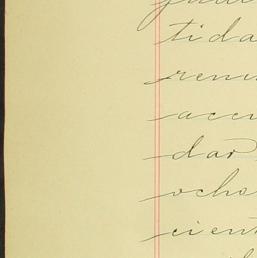 tida
remi
accu
dar
ocho
cient